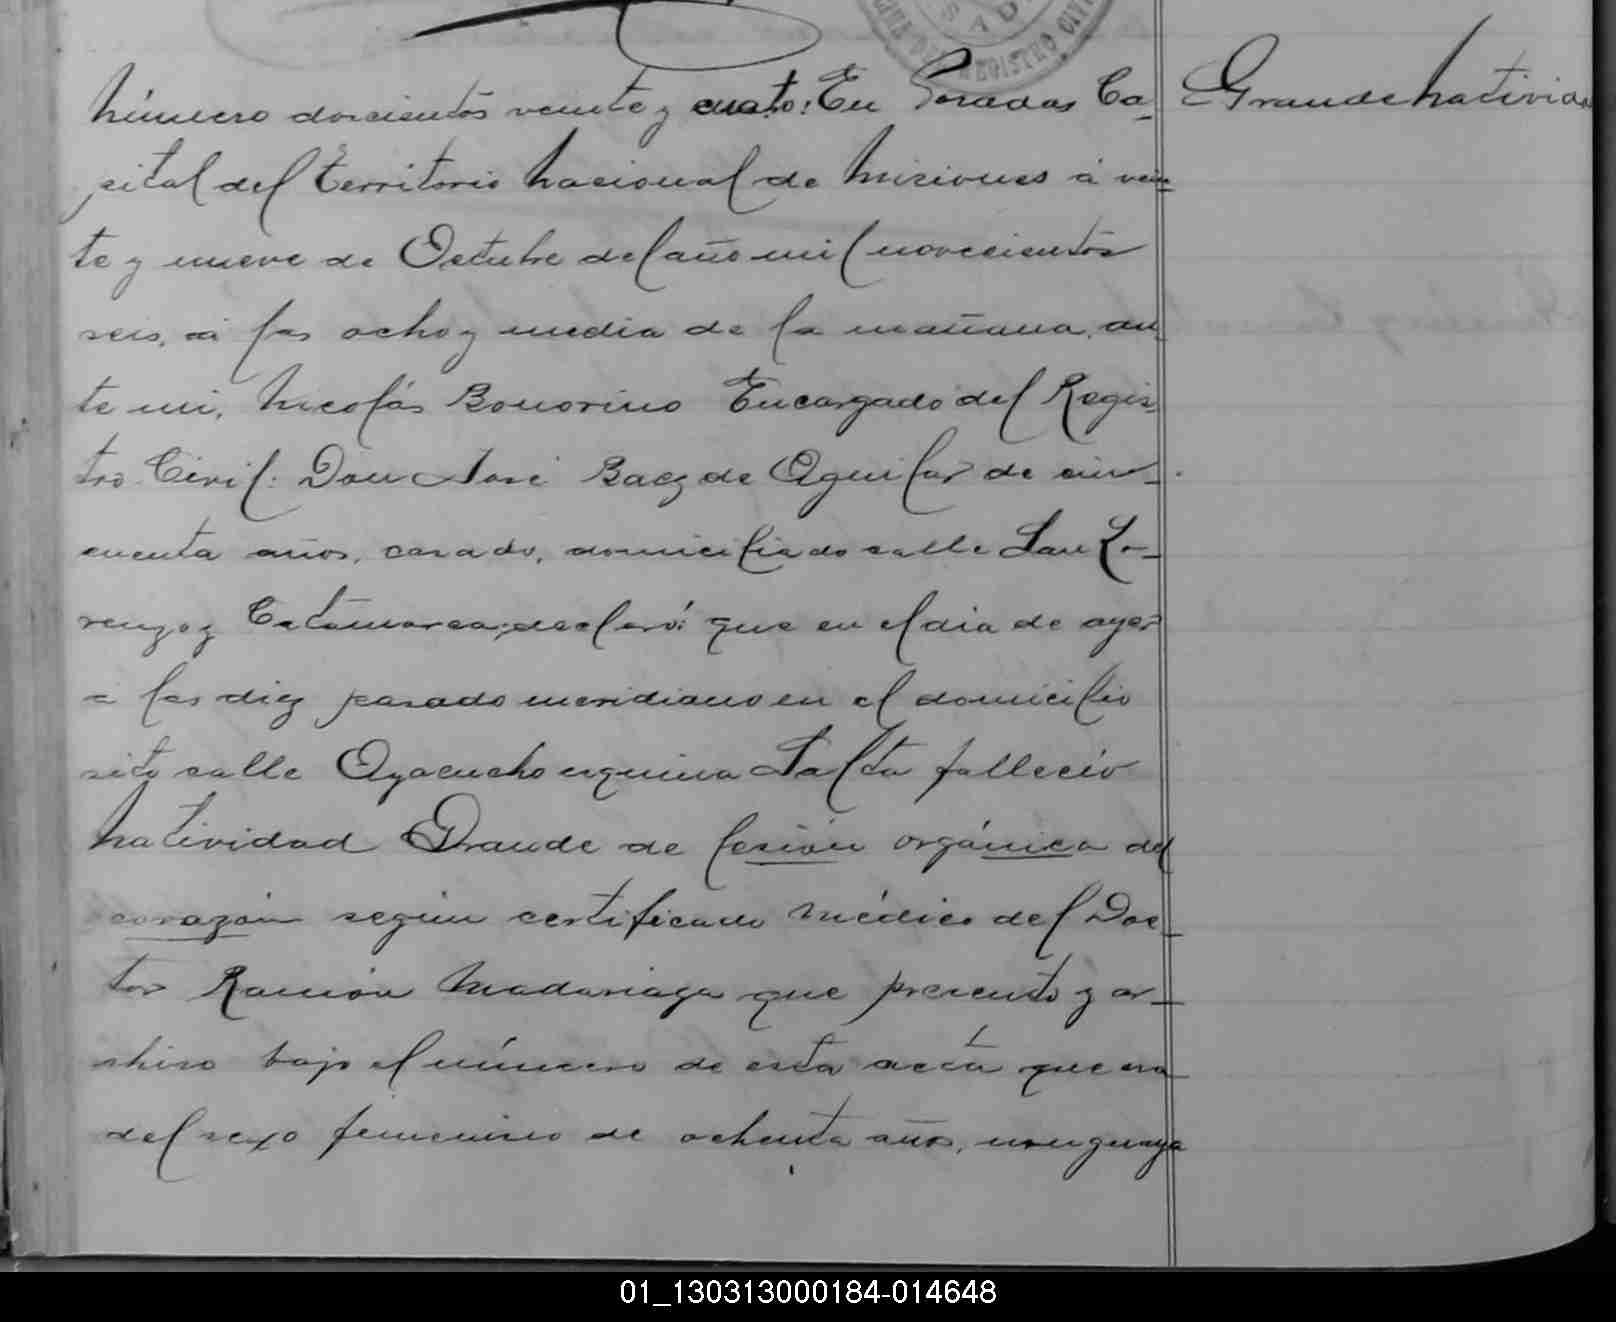 Número doscientos veinte y cuatro: En Posadas Ca-
pital del Territorio Nacional de Misiones á vein-
te y nueve de Octubre del año mil novecientos
seis, á las ocho y media de la mañana, an-
te mi, Nicolás Bonorino Encargado del Regis-
tro Civil: Don José Baez de Aguilar de cin-
cuenta años, casado, domiciliado calle San Lo-
renzo y Catamarca; declaró: que en el dia de ayer
á las diez pasado meridiano en el domicilio
sito calle Ayacucho esquina Salta falleció
Natividad Grande de lesión orgánica del
corazón según certificado médico del Doc-
tor Ramón Madariaga que presento y ar-
chivo bajo el número de esta acta que era
del sexo femenino de ochenta años, uruguaya
Grande Natividad
REGISTRO CIVIL
01_130313000184-014648